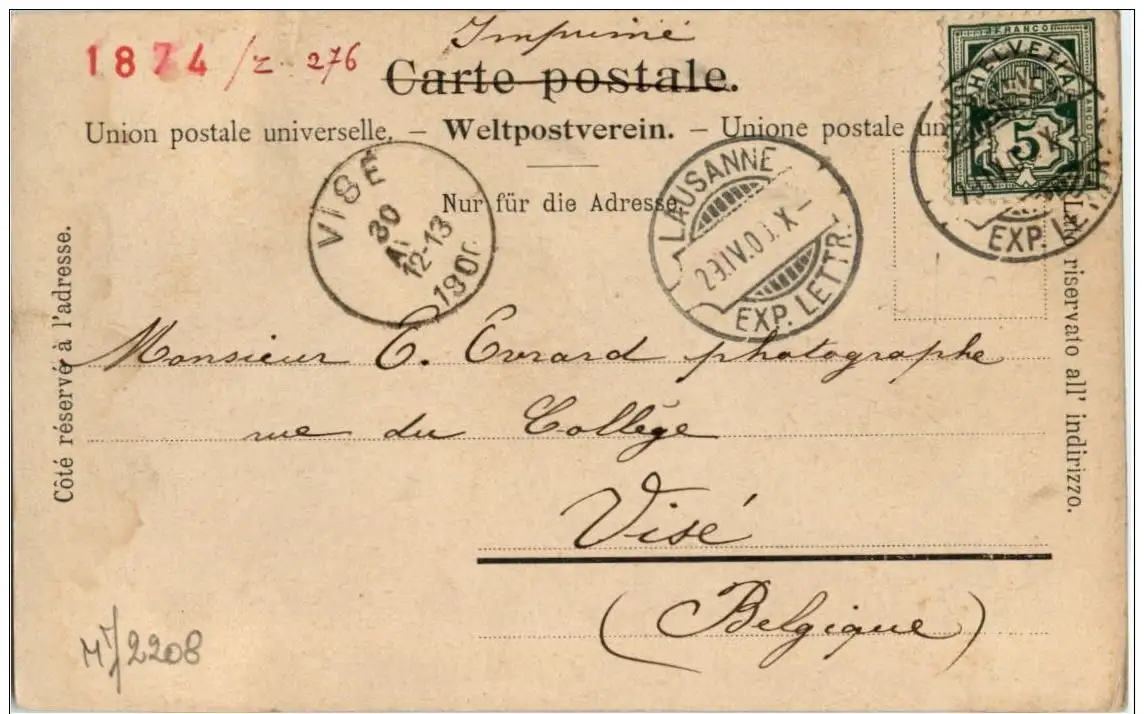 Imprimé
1874 /z. 276
Carte postale.
Union postale universelle. — Weltpostverein. — Unione postale un
Nur für die Adresse.
Côté réservé à l'adresse.
Lato riservato all' indirizzo.
FRANCO
HELVETIA
5
LAUSANNE
29.IV.00. X –
EXP. LETTR.
EXP. LETTR.
VISÉ
30
12-13
1900
Monsieur E. Evrard photographe
rue du Collége
Visé
(Belgique)
2208